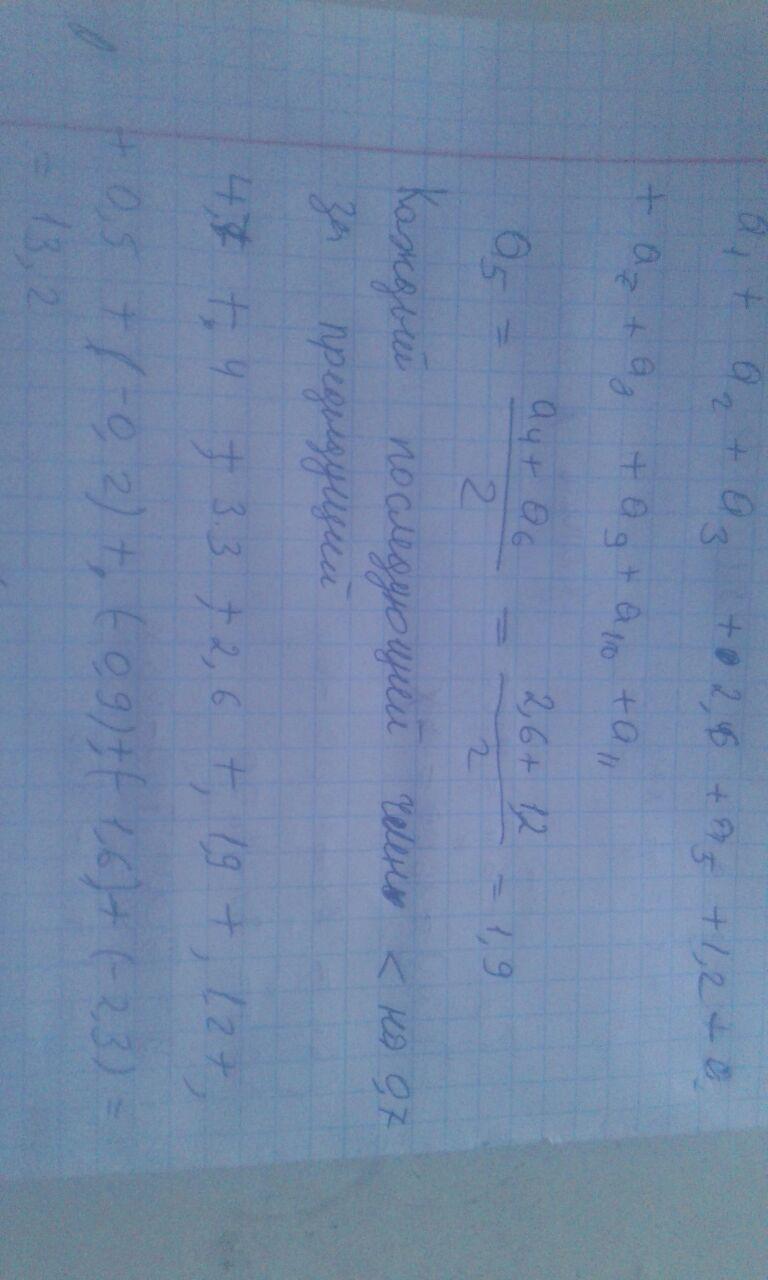 a₁ + a₂ + a₃ + 2,6 + a₅ + 1,2 + a
+ a₇ + a₈ + a₉ + a₁₀ + a₁₁
a₅ = (a₄ + a₆)/2 = (2,6 + 1,2)/2 = 1,9
Каждый последующей член < на 0,7
предыдущий
4,7 + 4 + 3.3 + 2,6 + 1,9 + 1,2 +
+ 0,5 + (-0,2) + (-0,9) + (-1,6) + (-2,3) =
= 13,2